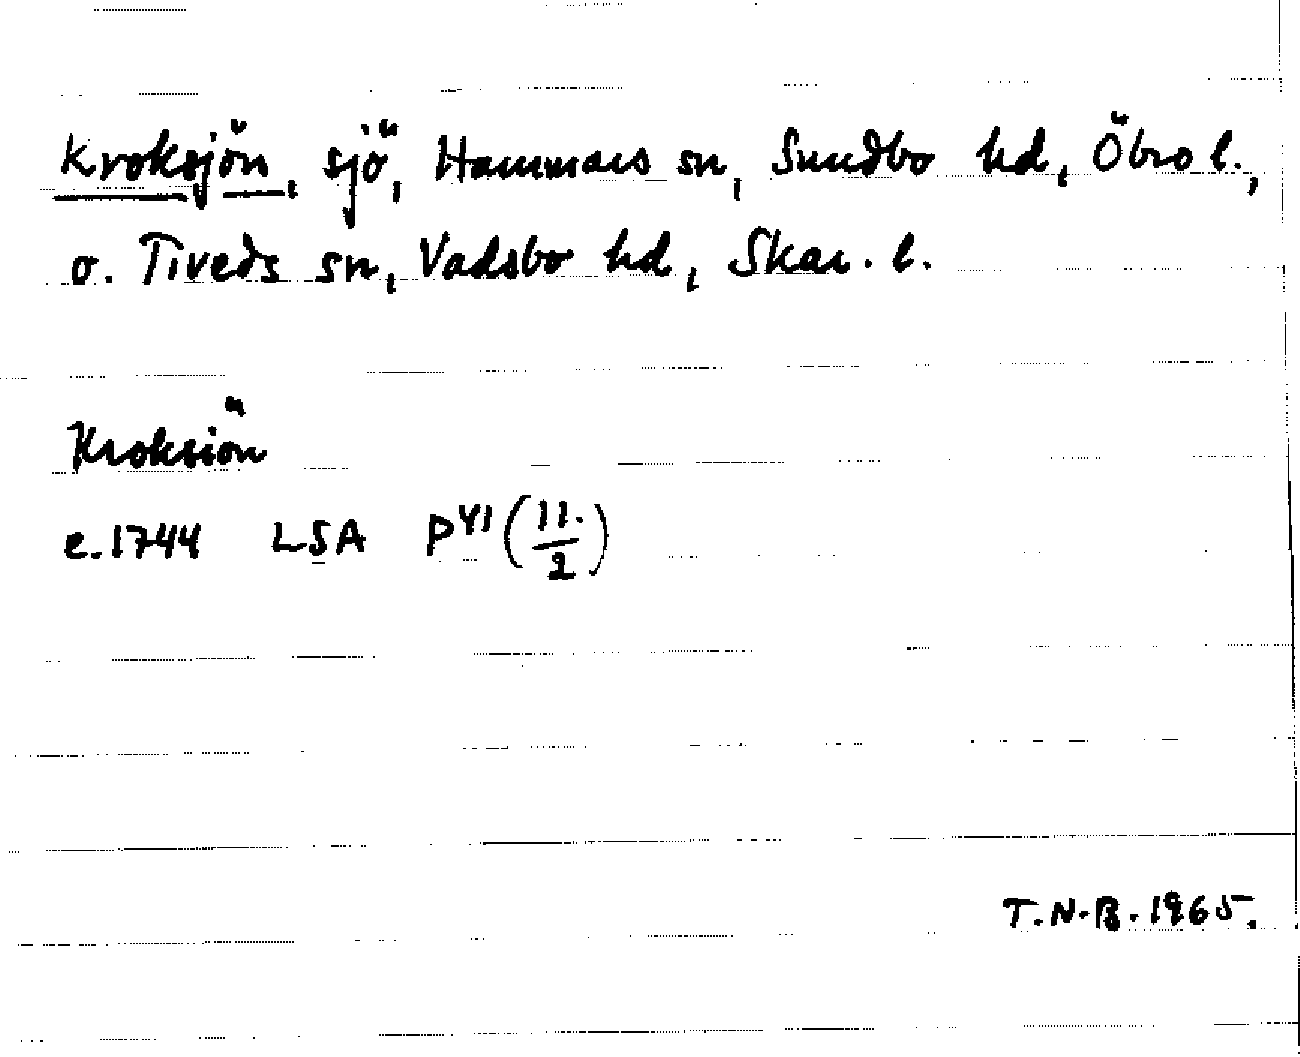 Kroksjön, sjö, Hammars sn, Sundbo hd, Öbro l.,
o. Tiveds sn, Vadsbo hd, Skar. l.
Kroksiön
e. 1744 LSA P41 (11./2)
T.N.B. 1965.